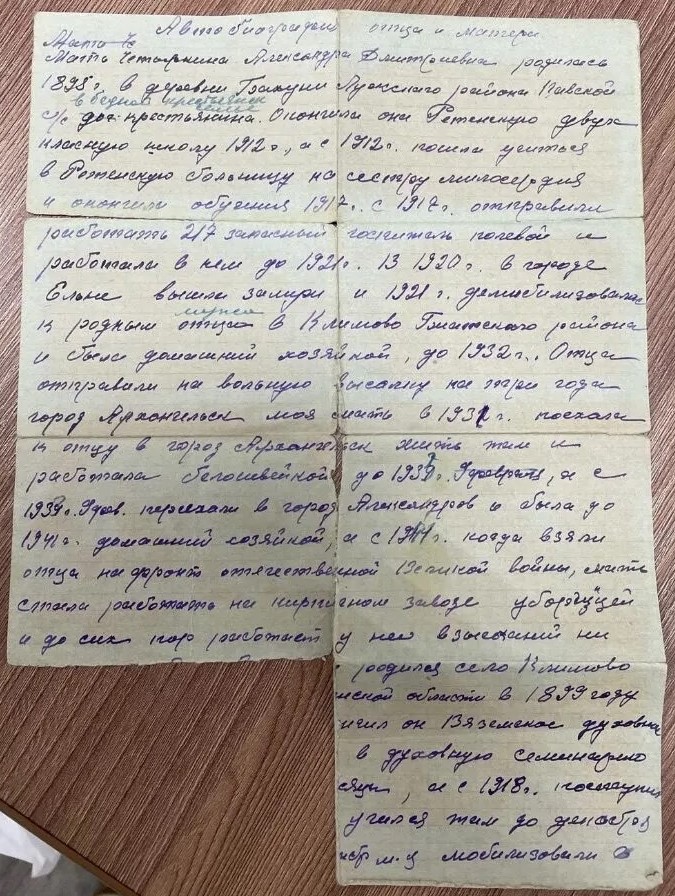 Автобиография отца и матери
Мать Че
Мать Четыркина Александра Дмитриевна родилась
1898 г. в деревни Лужского района Павской
в бедной крестьянск
с/с доч крестьянина. Окончила она Ретенскую двух
класную школу 1912 г., а с 1912 г. пошла учиться
в Ретенскую больницу на сестру милосердия
и окончила обучения 1917 г. с 1917 г. отправили
работать 217 запасный госпиталь полевой и
работала в нем до 1921 г. В 1920 г. в городе
Ельне вышла замуж и 1921 г. демобилизовалась
мужа
к родным отца в Климово Гжатского района
и была домашний хозяйкой, до 1932 г. Отца
отправили на вольную высылку на три года
город Архангельск моя мать в 1932 г. поехала
к отцу в город Архангельск жить там и
работала белошвейкой до 1939 г. февраля, а с
1939 г. фев. переехали в город Александров и была до
1941 г. домашний хозяйкой, а с 1941 г. когда взяли
отца на фронт отечественной Великой войны, мать
стала работать на кирпичном заводе уборщицей
и до сих пор работает у нее взысканий ни
родился село Климово
нской области в 1899 году
нчил он Вяземское духовное
в духовную семинарию
, а с 1918 г. поступил
учился там до декабря
м-ц мобилизовали в